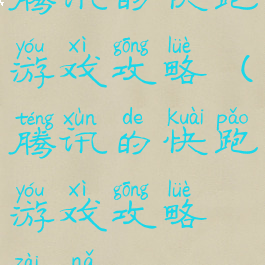 腾讯的快跑
yóu xì gōng lüè
游戏攻略（
téng xùn de kuài pǎo
腾讯的快跑
yóu xì gōng lüè
游戏攻略
zài nǎ